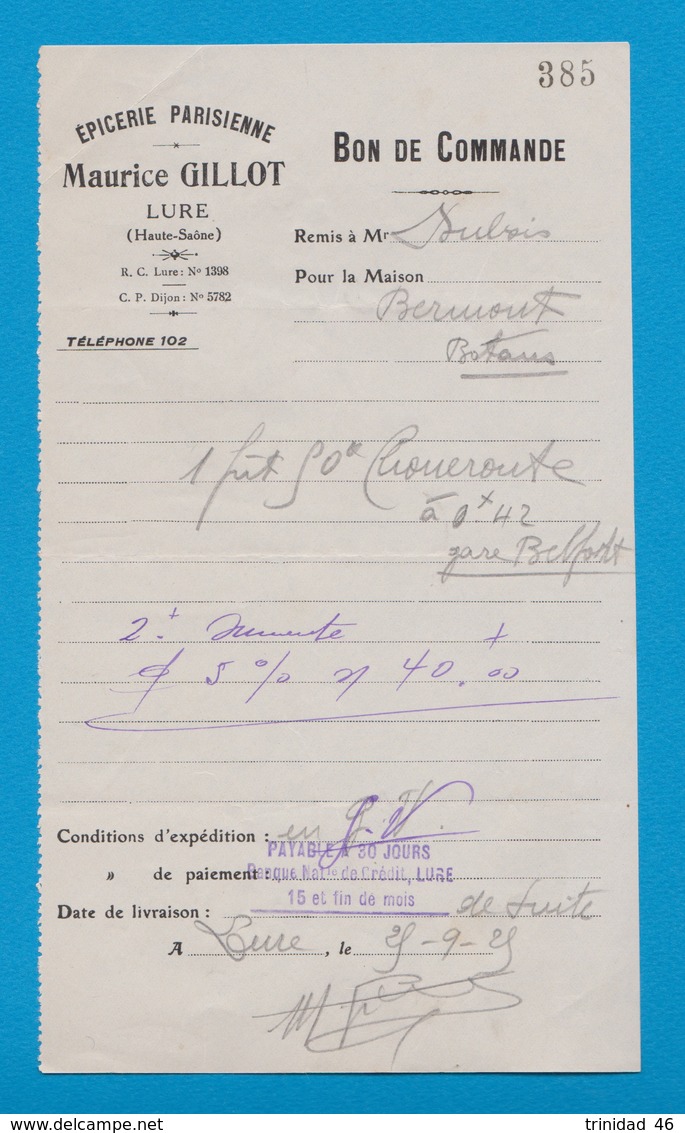 385
ÉPICERIE PARISIENNE
Maurice GILLOT
LURE
(Haute-Saône)
R. C. Lure: No 1398
C. P. Dijon: No 5782
TÉLÉPHONE 102
BON DE COMMANDE
Remis à Mr Dubois
Pour la Maison
Bermont
Botans
1 fût 50k Choucroute
à 0x42
gare Belfort
2.
5 % 40.00
Conditions d'expédition : en G.V.
» de paiement :
PAYABLE A 30 JOURS
Banque Natle de Crédit, LURE
15 et fin de mois
Date de livraison : de suite
A Lure, le 25-9-25
delcampe.net
trinidad 46